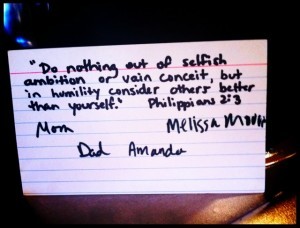 "Do nothing out of selfish
ambition or vain conceit, but
in humility consider others better
than yourself." Philippians 2:3
Mom Melissa
Dad Amanda